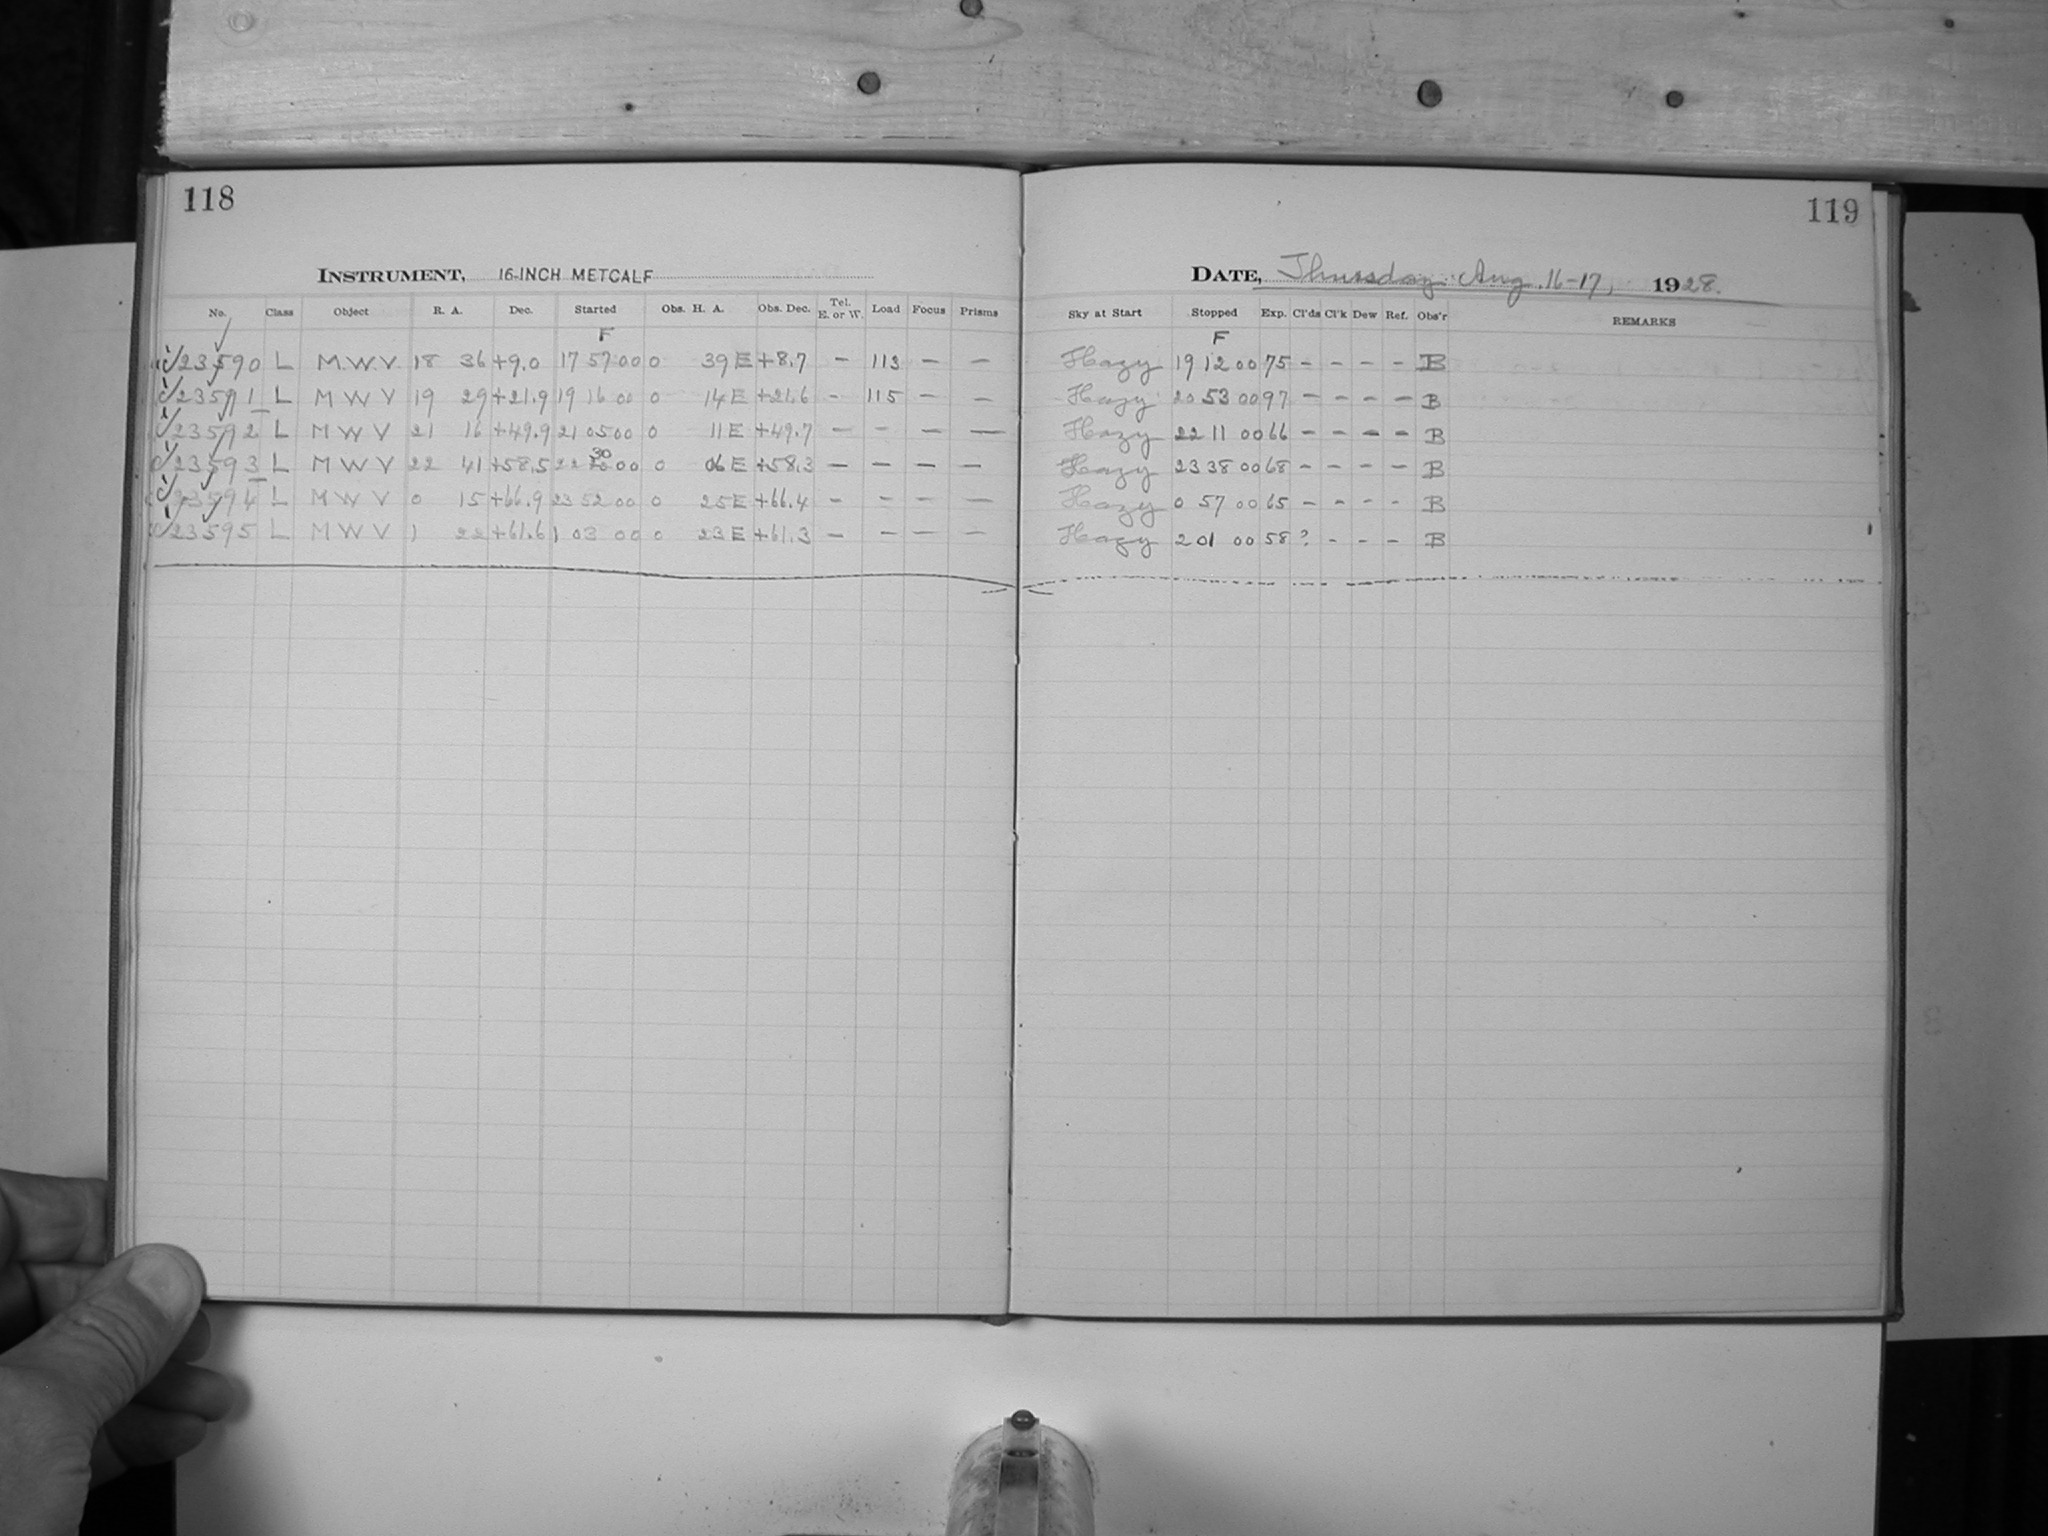 118
INSTRUMENT, 16-INCH METCALF
No. Class Object R. A. Dec. Started Obs. H. A. Obs. Dec. Tel. E. or W. Load Focus Prisms
F
23590 L M.W.V. 18 36 +9.0 17 57 00 0 39 E +8.7 – 113 – –
23591 L M W V 19 29 +21.9 19 16 00 0 14 E +21.6 – 115 – –
23592 L M W V 21 16 +49.9 21 05 00 0 11 E +49.7 – – – –
23593 L M W V 22 41 +58.5 22 30 00 0 06 E +58.3 – – – –
23594 L M W V 0 15 +66.9 23 52 00 0 25 E +66.4 – – – –
23595 L M W V 1 22 +61.6 1 03 00 0 23 E +61.3 – – – –
119
DATE, Thursday Aug. 16-17, 1928.
Sky at Start Stopped Exp. Cl'ds Cl'k Dew Ref. Obs'r REMARKS
F
Hazy 19 12 00 75 – – – – B
Hazy 20 53 00 97 – – – – B
Hazy 22 11 00 66 – – – – B
Hazy 23 38 00 68 – – – – B
Hazy 0 57 00 65 – – – – B
Hazy 2 01 00 58 ? – – – B